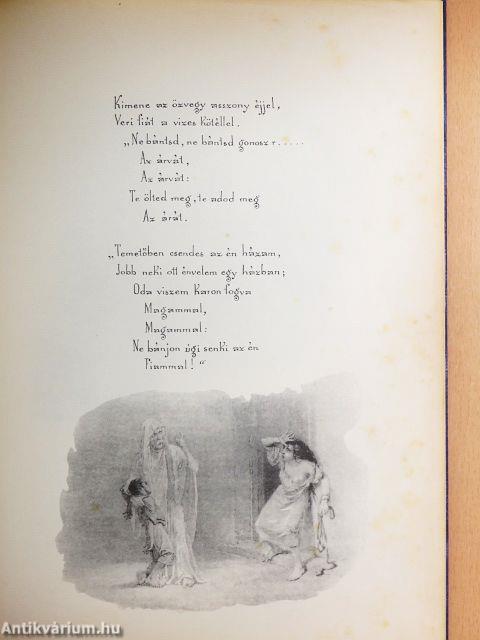 Kimene az özvegy asszony éjjel,
Veri fiát a vizes kötéllel.
„Ne bántsd, ne bántsd gonosz r.....
Az árvát,
Az árvát:
Te ölted meg, te adod meg
Az árát.
„Temetőben csendes az én házam,
Jobb neki ott énvelem egy házban;
Oda viszem karon fogva
Magammal,
Magammal:
Ne bánjon úgi senki az én
Fiammal!“
Antikvárium.hu